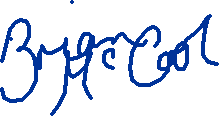 Brian
McCool